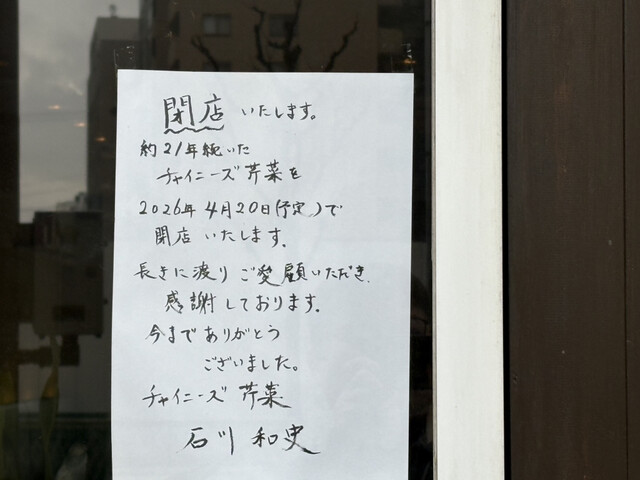 閉店いたします。
約21年続いた
チャイニーズ芹菜を
2026年4月20日(予定)で
閉店いたします.
長きに渡りご愛顧いただき、
感謝しております.
今までありがとう
ございました。
チャイニーズ 芹菜
石川 和史